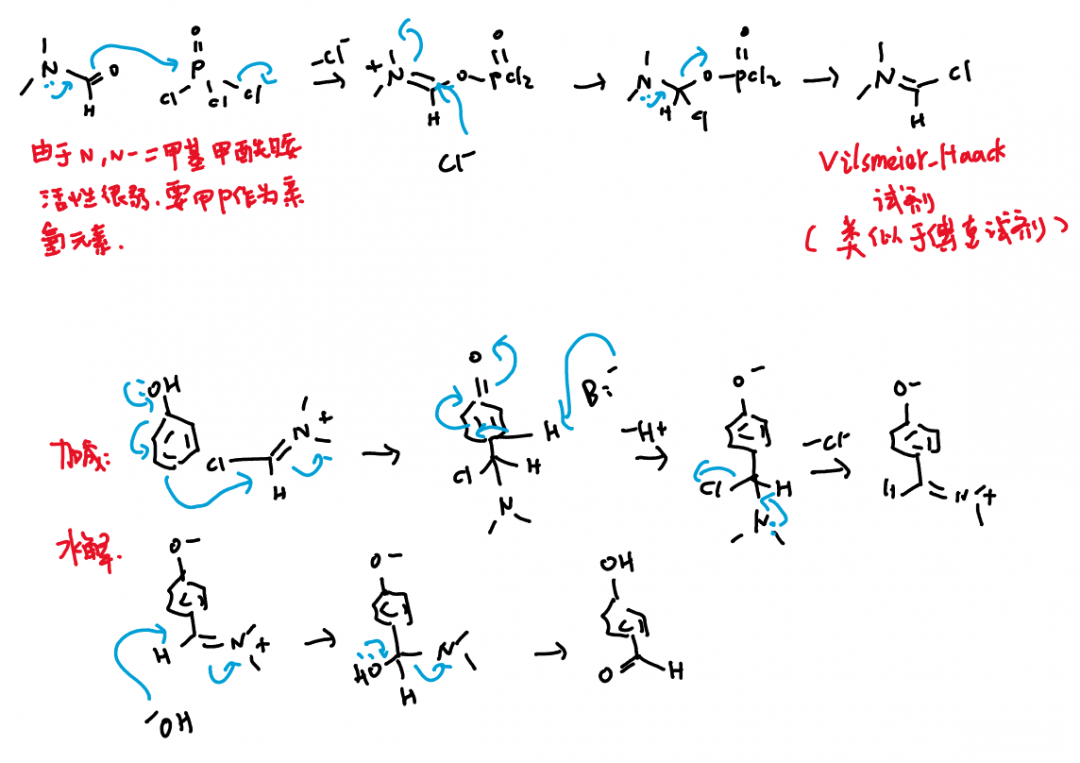 N O H
O P Cl Cl Cl
-Cl⁻
+ N H O O PCl2
Cl⁻
N H Cl O O PCl2
N Cl H
由于N,N-二甲基甲酰胺
活性很弱.要用P作为亲
氧元素.
Vilsmeier-Haack
试剂
(类似于傅克试剂)
加成:
OH Cl H N +
O H Cl H N
B:⁻
-H+
O⁻ Cl H N
-Cl⁻
O⁻ H N +
水解.
O⁻ H N +
⁻OH
O⁻ HO H N
OH O H